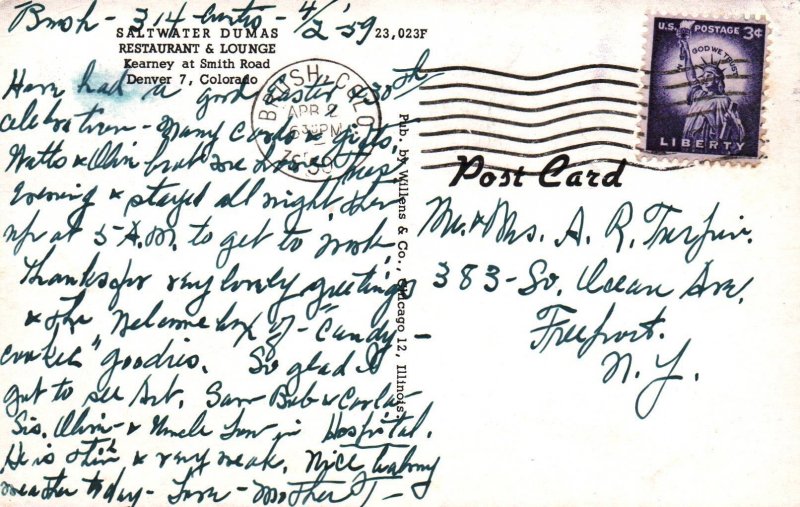 Brush - 314 Curtis - 4/2 '59
SALTWATER DUMAS
RESTAURANT & LOUNGE
Kearney at Smith Road
Denver 7, Colorado
23,023F
Have had a good Easter & 30th
celebration - Many cards & gifts.
Watts & Olin brot me home Tues
evening & stayed all night, then
up at 5 A.M. to get to work.
Thanks for very lovely greetings
& the welcome box of "Candy -
cookies" goodies. So glad I
got to see Art. Saw Bub & Carla
Sis, Olin & Uncle in Hospital.
He is thin & very weak. Nice
weather today - Love - Mother T -
Pub. by Willens & Co., Chicago 12, Illinois.
BRUSH, COLO.
APR 2
630 PM
1959
U.S. POSTAGE 3¢
IN GOD WE TRUST
LIBERTY
Post Card
Mr. & Mrs. A. R. Turpin.
383 - So. Ocean Ave.
Freeport.
N. Y.